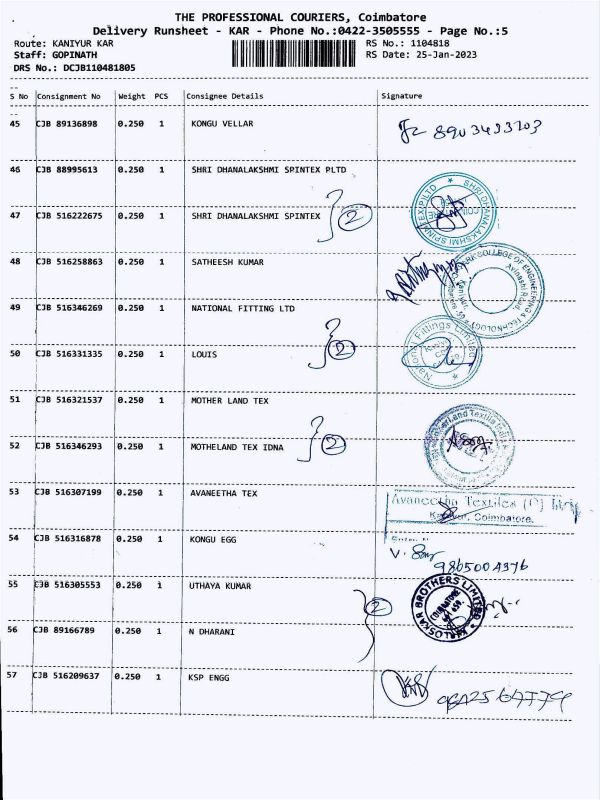 THE PROFESSIONAL COURIERS, Coimbatore
Delivery Runsheet - KAR - Phone No.:0422-3505555 - Page No.:5
Route: KANIYUR KAR
RS No.: 1104818
Staff: GOPINATH
RS Date: 25-Jan-2023
DRS No.: DCJB110481805
S No Consignment No Weight PCS Consignee Details Signature
45 CJB 89136898 0.250 1 KONGU VELLAR
46 CJB 88995613 0.250 1 SHRI DHANALAKSHMI SPINTEX PLTD
47 CJB 516222675 0.250 1 SHRI DHANALAKSHMI SPINTEX 2
SHRI DHANALAKSHMI SPINTEX P LTD
48 CJB 516258863 0.250 1 SATHEESH KUMAR
COLLEGE OF ENGINEERING & TECHNOLOGY
Avinashi Road
49 CJB 516346269 0.250 1 NATIONAL FITTING LTD
National Fittings Limited
50 CJB 516331335 0.250 1 LOUIS 2
51 CJB 516321537 0.250 1 MOTHER LAND TEX
52 CJB 516346293 0.250 1 MOTHELAND TEX IDNA 2
53 CJB 516307199 0.250 1 AVANEETHA TEX
Avaneetha Textiles (P) Ltd
Coimbatore.
54 CJB 516316878 0.250 1 KONGU EGG
55 CJB 516305553 0.250 1 UTHAYA KUMAR 2
BROTHERS LIMITED
COIMBATORE
56 CJB 89166789 0.250 1 N DHARANI
57 CJB 516209637 0.250 1 KSP ENGG